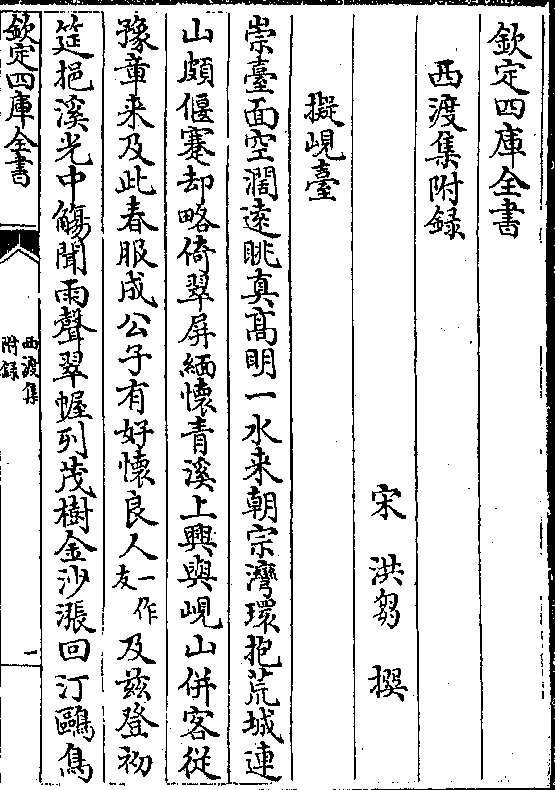 欽定四庫全書
西渡集附録
宋 洪芻 撰
擬峴臺
崇臺面空濶遠眺真髙明一水来朝宗灣環抱荒城連
山頗偃蹇却略倚翠屏緬懷青溪上興與峴山併客從
豫章来及此春服成公子有好懷良人一作友及兹登初
筵挹溪光中觴聞雨聲翠幄列茂樹金沙漲回汀鷗鳥
欽定四庫全書
西渡集
附録
一